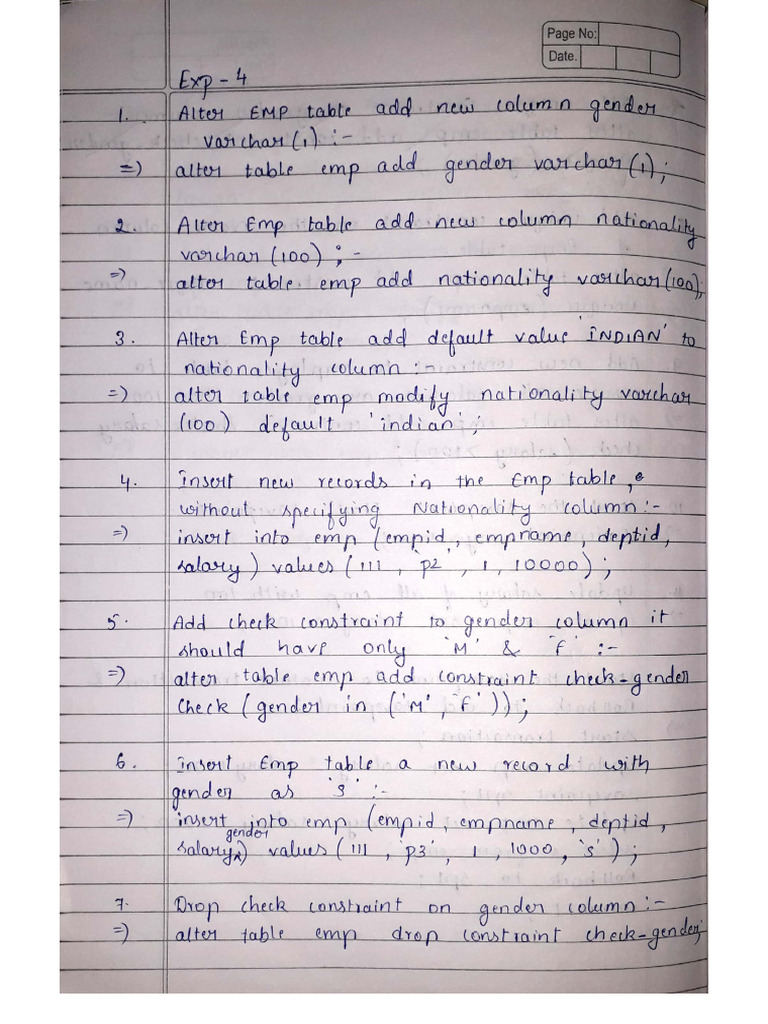 Page No:
Date.
Exp - 4
1. Alter EMP table add new column gender
varchar(1) :-
=) alter table emp add gender varchar(1);
2. Alter Emp table add new column nationality
varchar(100) ; -
=) alter table emp add nationality varchar(100);
3. Alter Emp table add default value 'INDIAN' to
nationality column :-
=) alter table emp modify nationality varchar
(100) default 'indian';
4. Insert new records in the Emp table,
without specifying Nationality column :-
=) insert into emp (empid, empname, deptid,
salary) values (111, 'p2', 1, 10000);
5. Add check constraint to gender column it
should have only 'M' & 'F' :-
=) alter table emp add constraint check-gender
check (gender in ('M', 'F'));
6. Insert Emp table a new record with
gender as 'S' :-
=) insert into emp (empid, empname, deptid,
gender
salary,) values (111, 'p3', 1, 1000, 's');
7. Drop check constraint on gender column :-
=) alter table emp drop constraint check-gender;